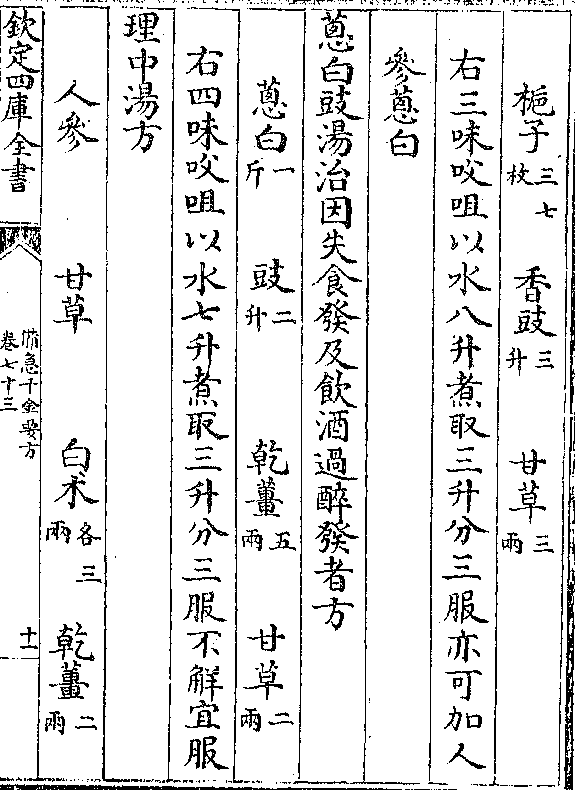 梔子三七枚　香豉三升　甘草三兩
右三味㕮咀以水八升煮取三升分三服亦可加人
參蔥白
蔥白豉湯治因失食發及飲酒過醉發者方
蔥白一斤　豉二升　乾薑五兩　甘草二兩
右四味㕮咀以水七升煮取三升分三服不解宜服
理中湯方
人參　甘草　白术各三兩　乾薑二兩
欽定四庫全書
備急千金要方
卷七十三
十一